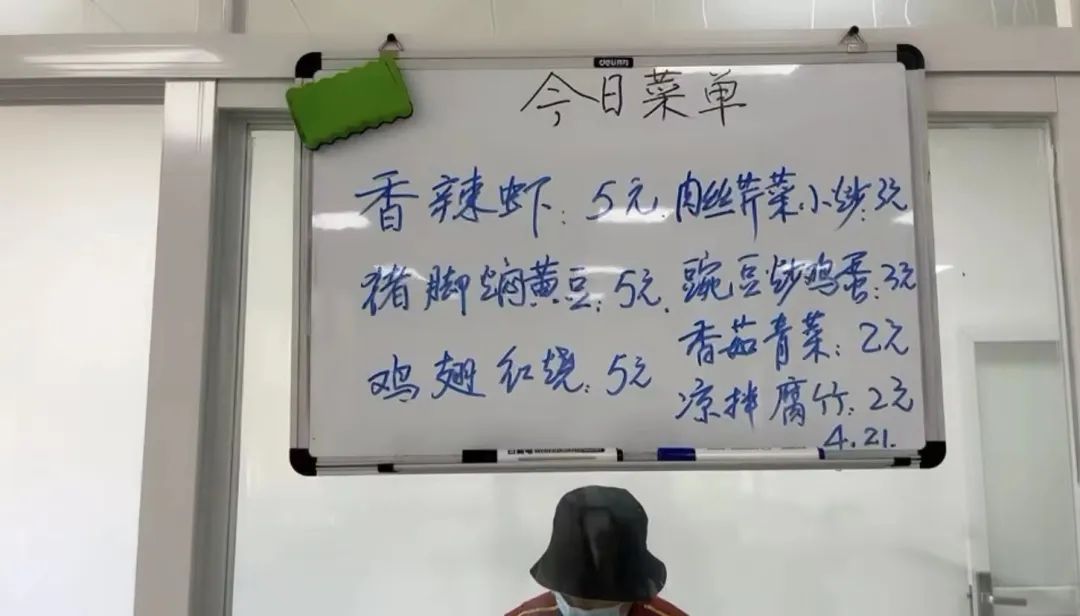 deli
今日菜单
香辣虾：5元.
猪脚焖黄豆：5元.
鸡翅红烧：5元
肉丝芹菜小炒：3元
豌豆炒鸡蛋：3元
香茹青菜：2元
凉拌腐竹：2元
4.21.